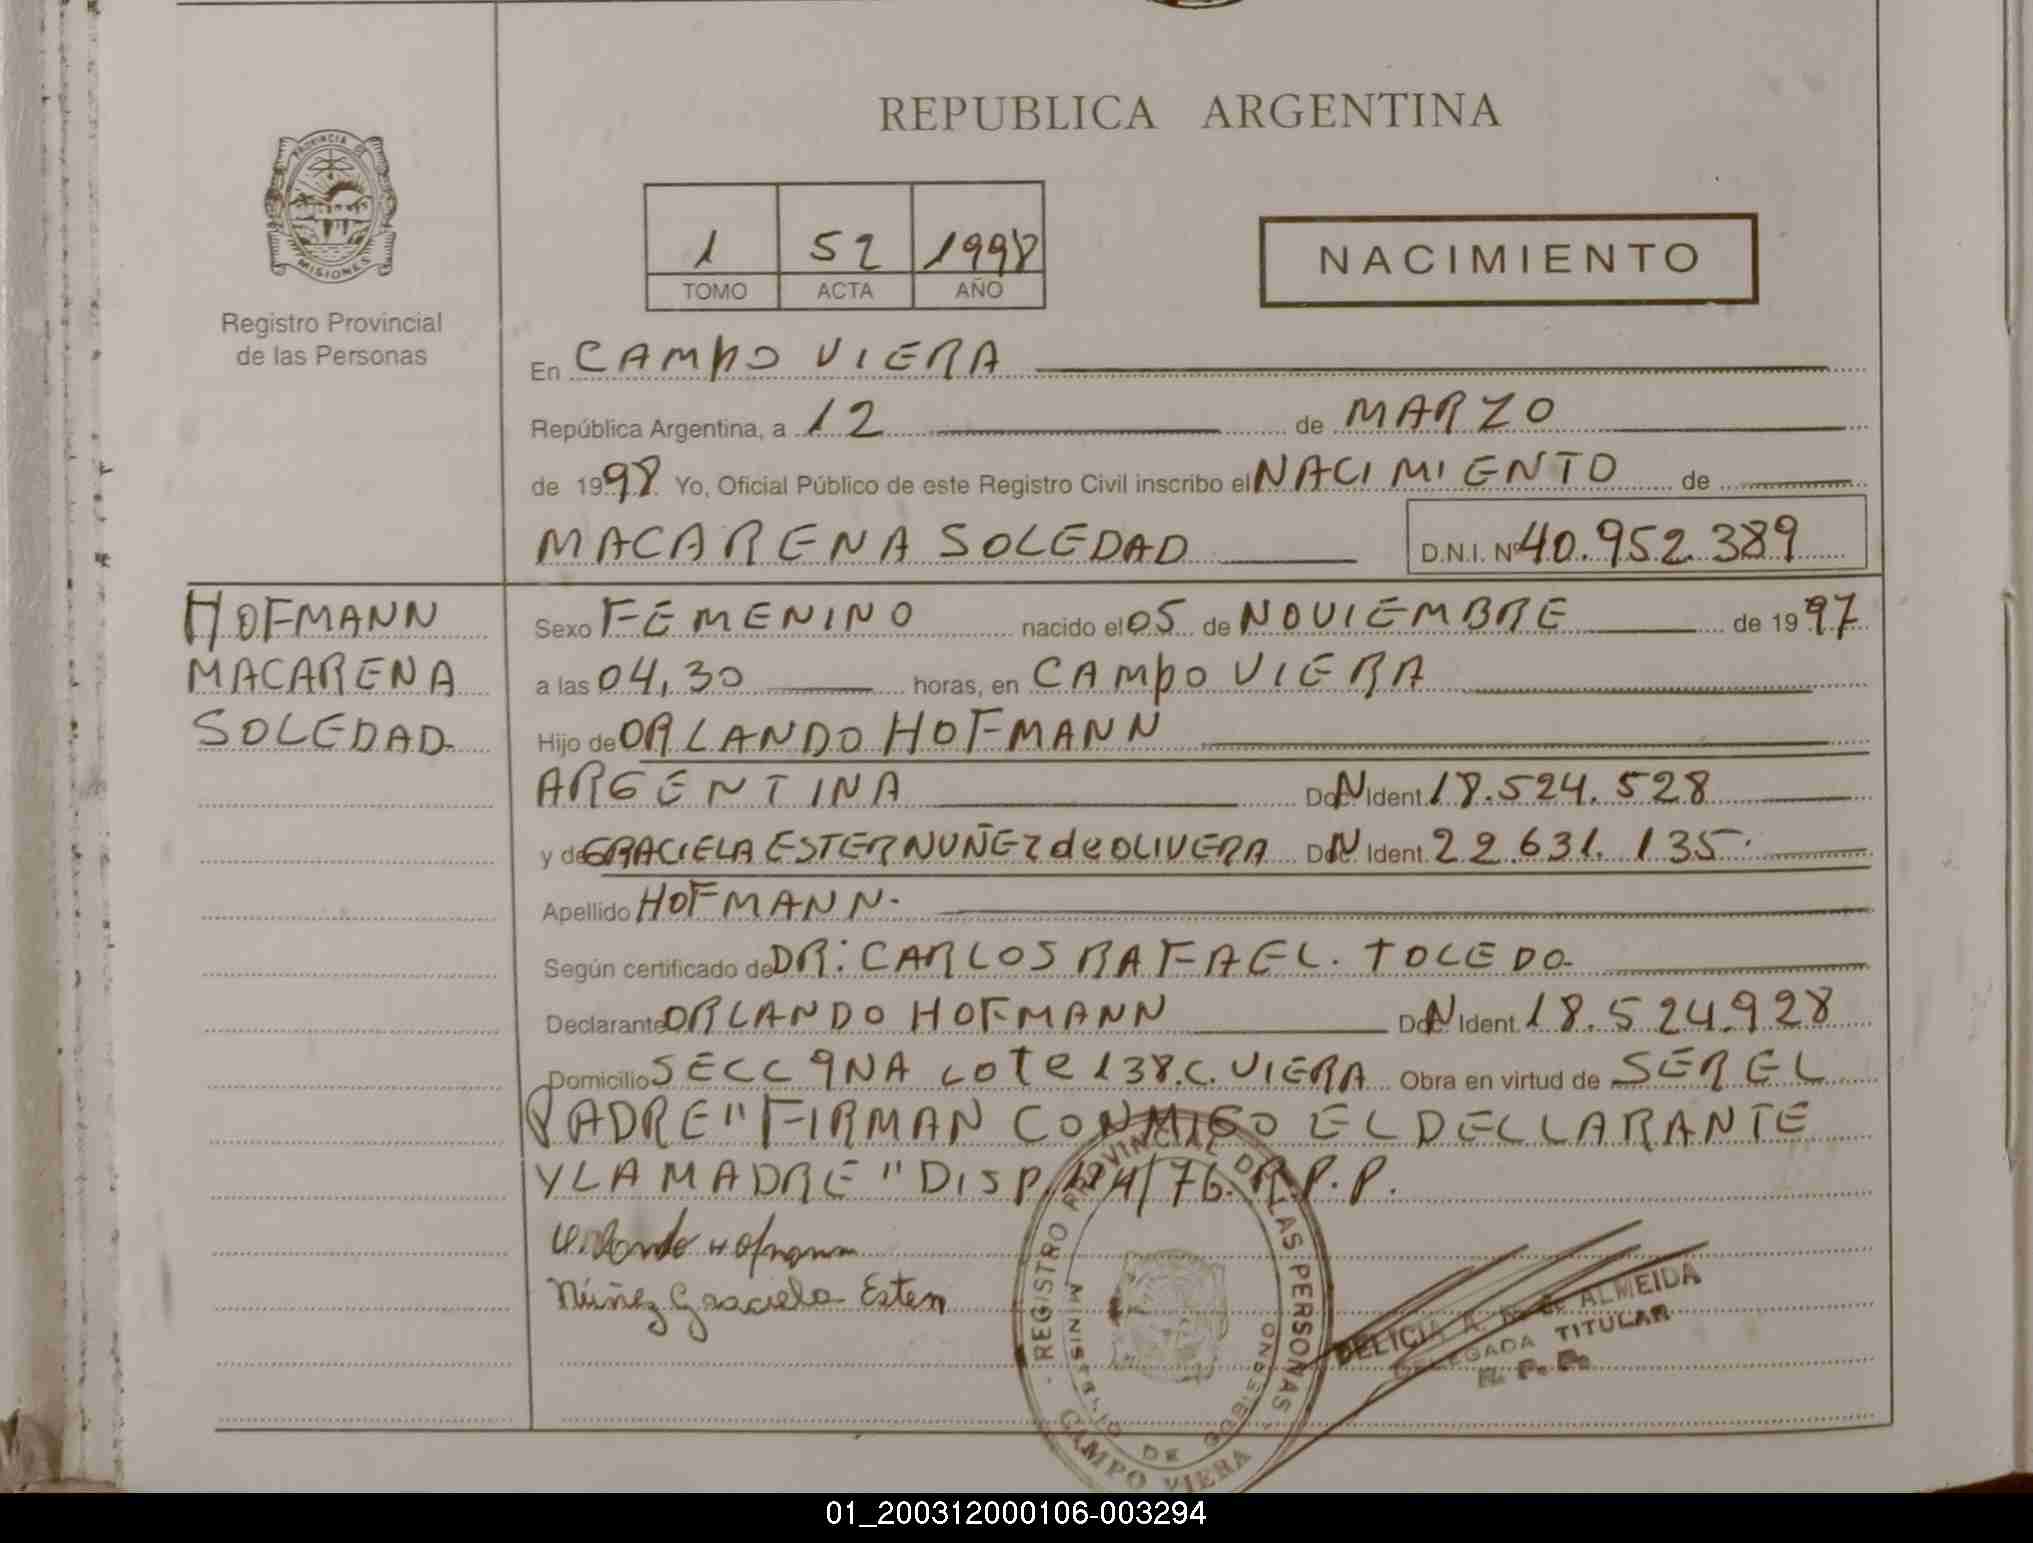 REPUBLICA ARGENTINA
PROVINCIA DE
MISIONES
Registro Provincial
de las Personas
1 52 1998
TOMO ACTA AÑO
NACIMIENTO
En CAMPO VIERA
República Argentina, a 12 de MARZO
de 1998 Yo, Oficial Público de este Registro Civil inscribo el NACIMIENTO de
MACARENA SOLEDAD D.N.I. Nº 40.952.389
HOFMANN
MACARENA
SOLEDAD
Sexo FEMENINO nacido el 05 de NOVIEMBRE de 1997
a las 04,30 horas, en CAMPO VIERA
Hijo de ORLANDO HOFMANN
ARGENTINA Doc. Ident. 18.524.528
y de GRACIELA ESTER NUÑEZ de OLIVERA Doc. Ident. 22.631.135.
Apellido HOFMANN.
Según certificado de DR: CARLOS RAFAEL. TOLEDO
Declarante ORLANDO HOFMANN Doc. Ident. 18.524.928
Domicilio SECC 9NA LOTE 138.C. VIERA Obra en virtud de SER EL
PADRE" FIRMAN CONMIGO EL DECLARANTE
Y LA MADRE "DISP. /76. R.P.P.
Hofmann
Núñez Graciela Ester
REGISTRO PROVINCIAL DE LAS PERSONAS
MINISTERIO DE GOBIERNO
CAMPO VIERA
DELICIA A. ALMEIDA
DELEGADA TITULAR
R. P. P.
01_200312000106-003294